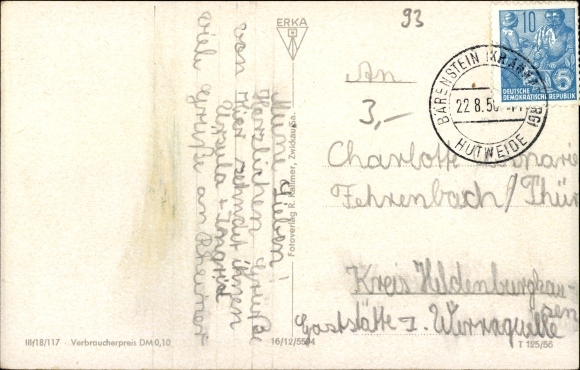 ERKA
93
10
DEUTSCHE
DEMOKRATISCHE REPUBLIK
5
BÄRENSTEIN (KR. ANNABERG)
22.8.56
HUTWEIDE
An
3,-
Charlotte
Fehrenbach/Thür
Kreis Hildenburghau-
sen
Gaststätte z. Werraquelle
Meine Lieben!
Herzlichen Grüße
von hier sendet Ihnen
Ursula + Ingrid
viele Grüße an
Fotoverlag R. Kallmer, Zwickau Sa.
III/18/117 Verbraucherpreis DM 0,10
16/12/5504
T 125/56